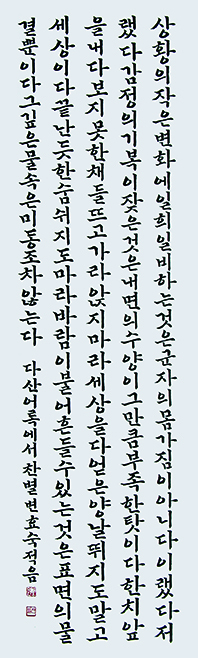 상황의작은변화에일희일비하는것은군자의몸가짐이아니다이랬다저
랬다감정의기복이잦은것은내면의수양이그만큼부족한탓이다한치앞
을내다보지못한채들뜨고가라앉지마라세상을다얻은양날뛰지도말고
세상이다끝난듯한숨쉬지도마라바람이불어흔들수있는것은표면의물
결뿐이다그깊은물속은미동조차않는다 다산어록에서찬별변효숙적음